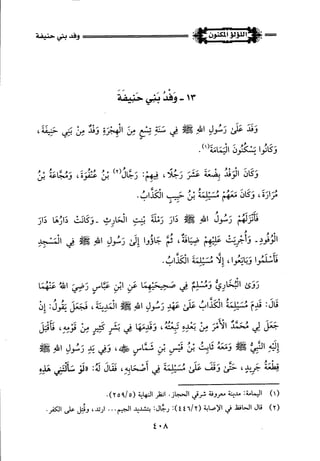 اللؤلؤ المكنون وفد بني حنيفة
١٣ - وَفْدُ بَنِي حَنِيفَةَ
وَفَدَ عَلَى رَسُولِ اللهِ ﷺ فِي سَنَةِ تِسْعٍ مِنَ الْهِجْرَةِ وَفْدٌ مِنْ بَنِي حَنِيفَةَ،
وَكَانُوا يَسْكُنُونَ الْيَمَامَةَ(١).
وَكَانَ الْوَفْدُ بِضْعَةَ عَشَرَ رَجُلًا، فِيهِمْ: رَجَّالُ(٢) بْنُ عُنْفُوَةَ، وَمُجَّاعَةُ بْنُ
مُرَارَةَ، وَكَانَ مَعَهُمْ مُسَيْلِمَةُ بْنُ حَبِيبٍ الْكَذَّابُ.
فَأَنْزَلَهُمْ رَسُولُ اللهِ ﷺ دَارَ رَمْلَةَ بِنْتِ الْحَارِثِ - وَكَانَتْ دَارُهَا دَارَ
الْوُفُودِ - وَأُجْرِيَتْ عَلَيْهِمْ ضِيَافَةٌ، ثُمَّ جَاؤُوا إِلَى رَسُولِ اللهِ ﷺ فِي الْمَسْجِدِ
فَأَسْلَمُوا وَبَايَعُوا، إِلَّا مُسَيْلِمَةَ الْكَذَّابَ.
رَوَى الْبُخَارِيُّ وَمُسْلِمٌ فِي صَحِيحَيْهِمَا عَنِ ابْنِ عَبَّاسٍ رَضِيَ اللهُ عَنْهُمَا
قَالَ: قَدِمَ مُسَيْلِمَةُ الْكَذَّابُ عَلَى عَهْدِ رَسُولِ اللهِ ﷺ الْمَدِينَةَ، فَجَعَلَ يَقُولُ: إِنْ
جَعَلَ لِي مُحَمَّدٌ الْأَمْرَ مِنْ بَعْدِهِ تَبِعْتُهُ، وَقَدِمَهَا فِي بَشَرٍ كَثِيرٍ مِنْ قَوْمِهِ، فَأَقْبَلَ
إِلَيْهِ النَّبِيُّ ﷺ وَمَعَهُ ثَابِتُ بْنُ قَيْسِ بْنِ شَمَّاسٍ ﷺ، وَفِي يَدِ رَسُولِ اللهِ ﷺ
قِطْعَةُ جَرِيدٍ، حَتَّى وَقَفَ عَلَى مُسَيْلِمَةَ فِي أَصْحَابِهِ، فَقَالَ لَهُ: «لَوْ سَأَلْتَنِي هَذِهِ
(١) اليمامة: مدينة معروفة شرقي الحجاز. انظر النهاية (٢٥٩/٥).
(٢) قال الحافظ في الإصابة (٤٤٦/٢): رجَّال: بتشديد الجيم... ارتد، وقُتل على الكفر.
٤٠٨